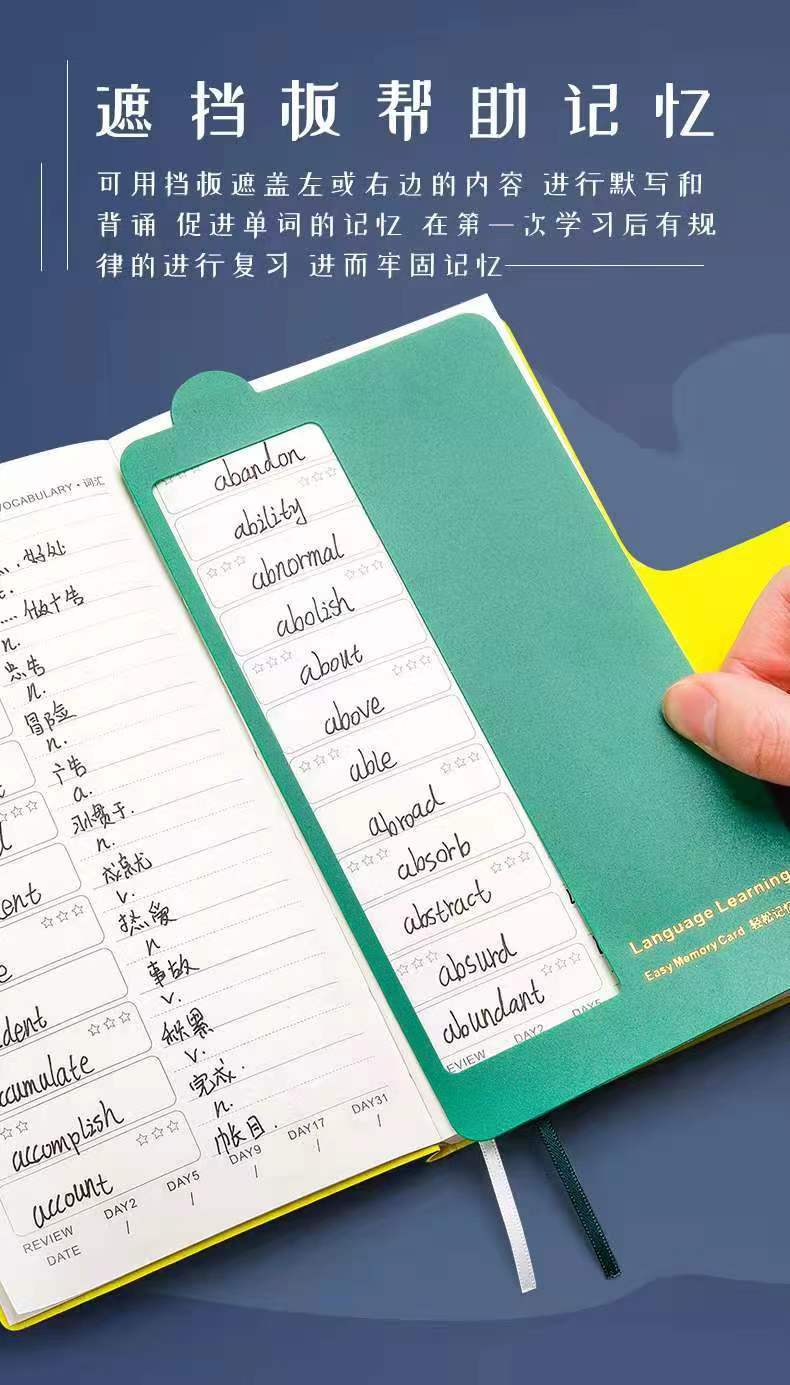 遮挡板帮助记忆
可用挡板遮盖左或右边的内容 进行默写和
背诵 促进单词的记忆 在第一次学习后有规
律的进行复习 进而牢固记忆
VOCABULARY·词汇
好处
做广告
n.
忠告
n.
冒险
n.
广告
a.
n.
成就
v.
热爱
n
事故
v.
积累
v.
完成.
n.
帐目.
ent
dent
accomplish
account
REVIEW DATE DAY2 DAY5 DAY9 DAY17 DAY31
abandon
ability
abnormal
abolish
about
above
able
abroad
absorb
abstract
absurd
abundant
EVIEW DAY2 DAY5
Language Learning
Easy Memory Card 轻松记忆